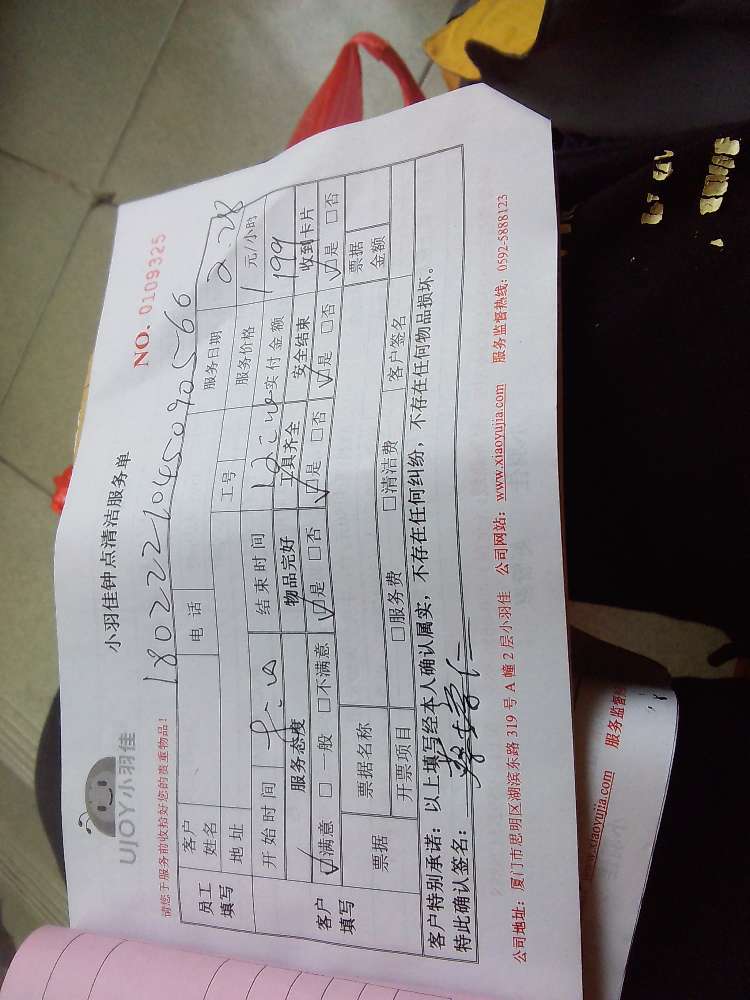 UJOY小羽佳
小羽佳钟点清洁服务单
NO. 0109325
请您于服务前收拾好您的贵重物品!
18022221045090566
员工填写
客户姓名
电话
服务日期 2.28
地址
工号
服务价格 元/小时
开始时间
结束时间
实付金额 199
客户填写
服务态度 物品完好 工具齐全 安全结束 收到卡片
☑满意 □一般 □不满意 ☑是 □否 ☑是 □否 ☑是 □否 ☑是 □否
票据
票据名称
□服务费 □清洁费
票据金额
开票项目
客户签名
客户特别承诺:以上填写经本人确认属实,不存在任何纠纷,不存在任何物品损坏。
特此确认签名:
公司地址:厦门市思明区湖滨东路319号A幢2层小羽佳 公司网站:www.xiaoyujia.com 服务监督热线:0592-5888123
www.xiaoyujia.com 服务监督